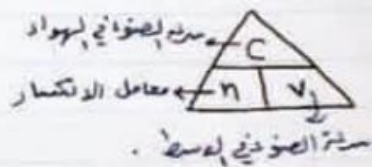 سرعة الضوء في الهواء
C
معامل الانكسار
n v
سرعة الضوء في الوسط .